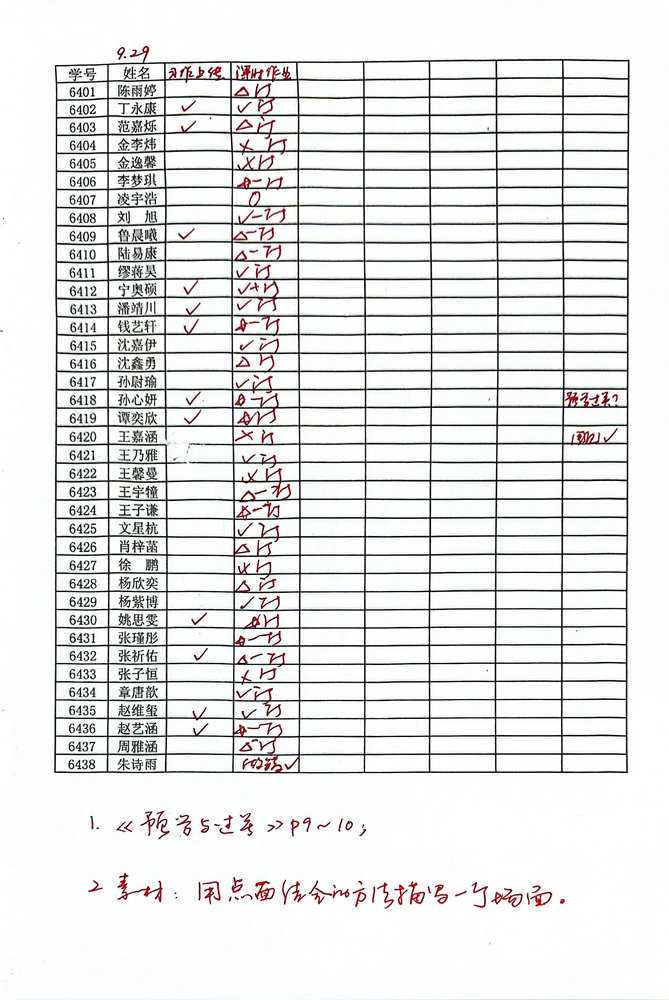 9.29
学号 姓名 习作上传 课时作业
6401 陈雨婷 △ 订
6402 丁永康 ✓ ✓ 订
6403 范嘉烁 ✓ △ 订
6404 金李炜 × 订
6405 金逸馨 × 订
6406 李梦琪 订
6407 凌宇浩 O
6408 刘 旭 ✓- 订
6409 鲁晨曦 ✓ △- 订
6410 陆易康 △- 订
6411 缪蒋昊 ✓ 订
6412 宁奥硕 ✓ ✓+ 订
6413 潘靖川 ✓ ✓ 订
6414 钱艺轩 ✓ 订
6415 沈嘉伊 ✓ 订
6416 沈鑫勇 △ 订
6417 孙尉瑜 ✓ 订
6418 孙心妍 ✓ 订 预习过关?
6419 谭奕欣 ✓ 订
6420 王嘉涵 × 订 ✓
6421 王乃雅 ✓ 订
6422 王馨曼 × 订
6423 王宇犝 △- 订
6424 王子谦 订
6425 文星杭 ✓ 订
6426 肖梓菡 △ 订
6427 徐 鹏 × 订
6428 杨欣奕 △ 订
6429 杨紫博 ✓ 订
6430 姚思雯 ✓ 订
6431 张瑾彤 订
6432 张祈佑 ✓ △- 订
6433 张子恒 × 订
6434 章唐歆 ✓ 订
6435 赵维玺 ✓ ✓ 订
6436 赵艺涵 ✓ 订
6437 周雅涵 △ 订
6438 朱诗雨 ✓
1. 《预习与过关》P9~10;
2 素材: 用点面结合的方法描写一个场面。